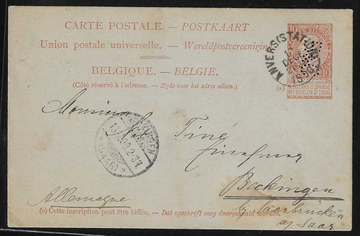 CARTE POSTALE. — POSTKAART
Union postale universelle. — Wereldpostvereeniging
BELGIQUE. — BELGIE.
(Côté réservé à l'adresse. — Zyde voor het adres alleen.)
ANVERS (STATION)
Monsieur
Tiné
Beckingen
by Saarbrücken
a/ Saar
Allemagne
(o) Cette inscription peut être biffée. — Dat opschrift mag doorgehaald worden.